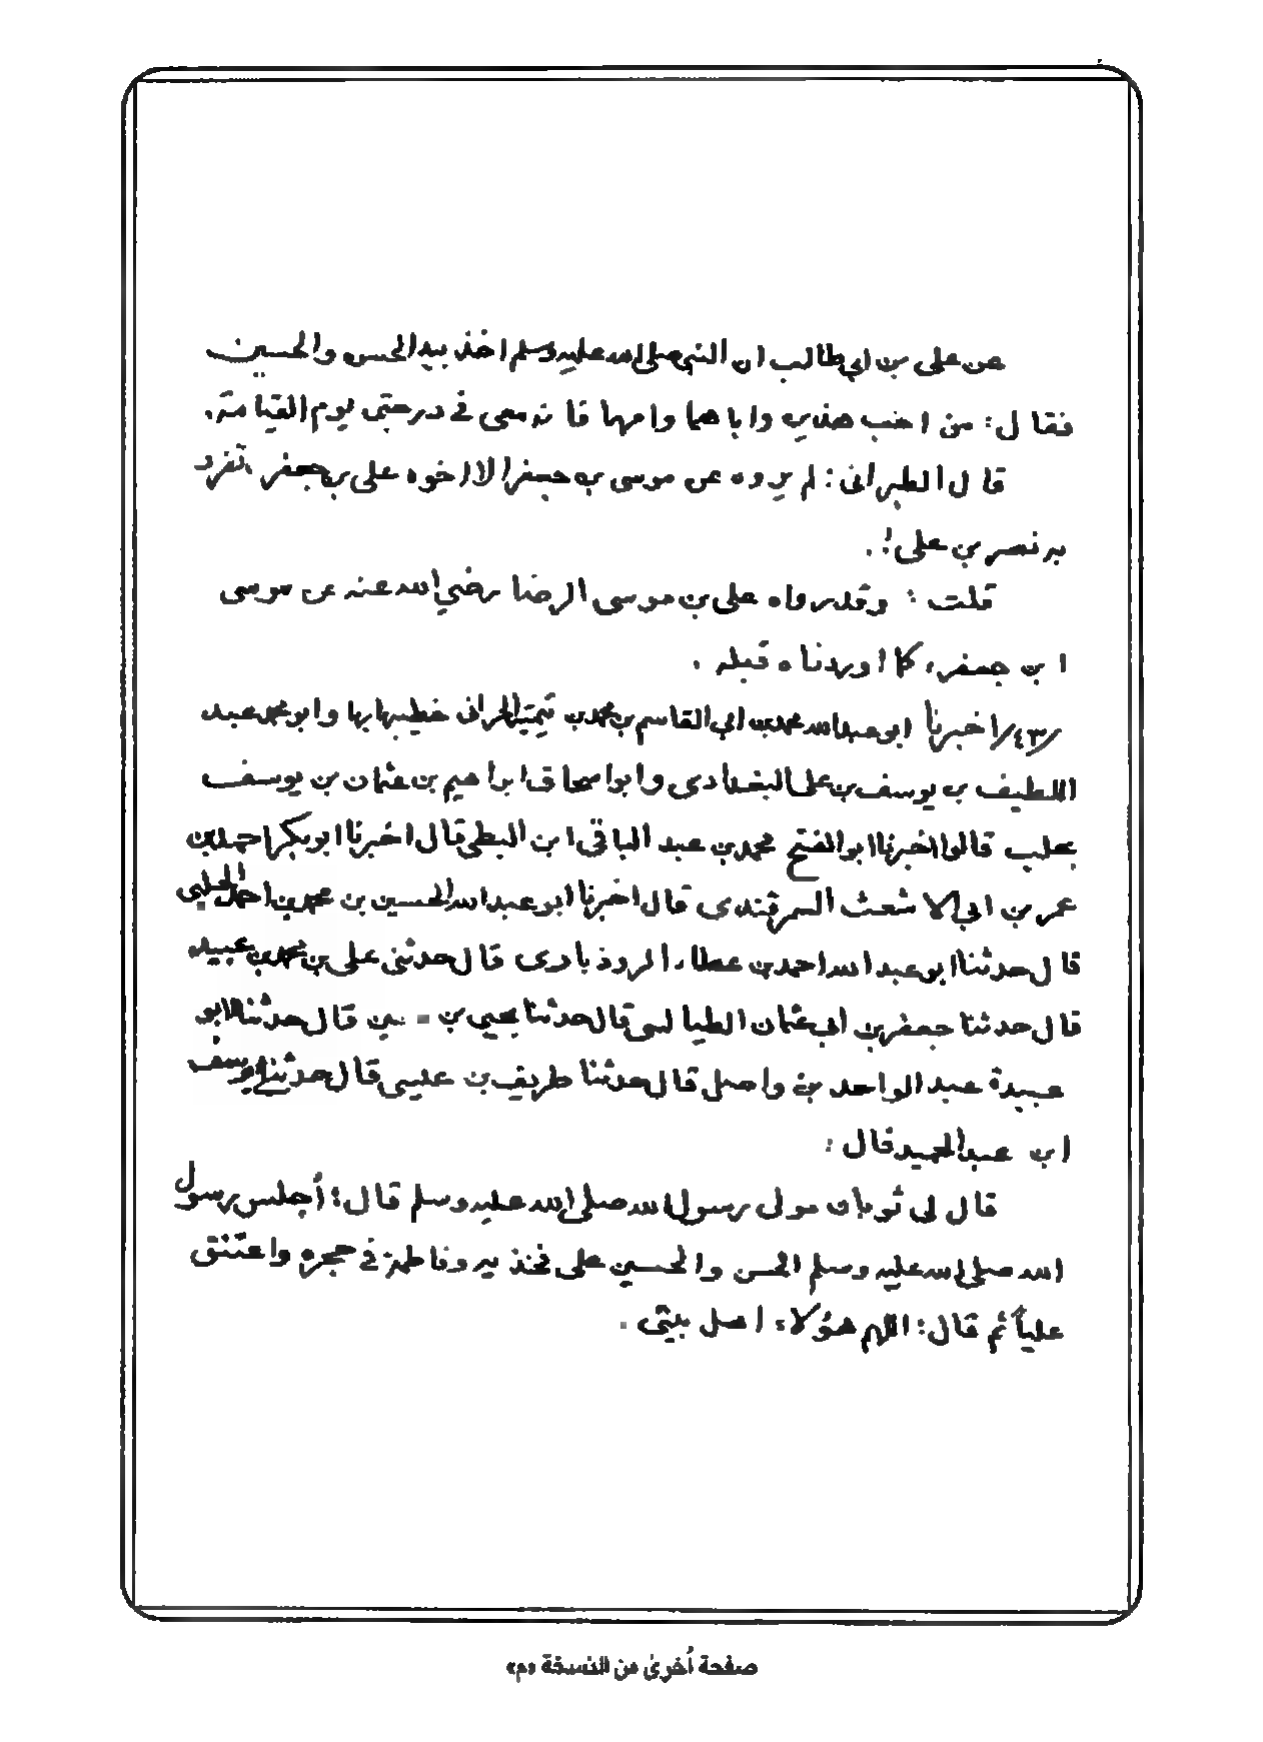 عن على بن ابي طالب ان النبي صلى الله عليه وسلم اخذ بيد الحسن والحسين
فقال: من احب هذين واباهما وامهما فانه معى في درجتى يوم القيامة.
قال الطبرانى: لم يروه عن موسى بن جعفر الا اخوه على بن جعفر، تفرد
به نصر بن على!.
قلت: وقد رواه على بن موسى الرضا رضي الله عنه عن موسى
ابن جعفر، كما اوردناه قبله.
/٤٣/ اخبرنا ابو عبدالله محمد بن ابي القاسم بن محمد بن تيمية الحرانى خطيبها بها وابو محمد عبد
اللطيف بن يوسف بن على البغدادى وابو اسحاق ابراهيم بن عثمان بن يوسف
بحلب قالوا اخبرنا ابو الفتح محمد بن عبد الباقي ابن البطى قال اخبرنا ابو بكر احمد بن
عمر بن ابي الاشعث السمرقندى قال اخبرنا ابو عبدالله الحسين بن محمد بن احمد الحلبي
قال حدثنا ابو عبدالله احمد بن عطاء الروذبادى قال حدثنى على بن محمد بن عبيد
قال حدثنا جعفر بن ابي عثمان الطيالسى قال حدثنا يحيي بن ـين قال حدثنا ابو
عبيدة عبد الواحد بن واصل قال حدثنا طريف بن عليسى قال حدثنى يوسف
ابن عبد الحميد قال:
قال لى ثوبان مولى رسول الله صلى الله عليه وسلم قال: أجلس رسول
الله صلى الله عليه وسلم الحسن والحسين على فخذيه وفاطمة في حجره واعتنق
علياً ثم قال: اللهم هؤلاء اهل بيتى.
صفحة أخرى من النسخة «م»